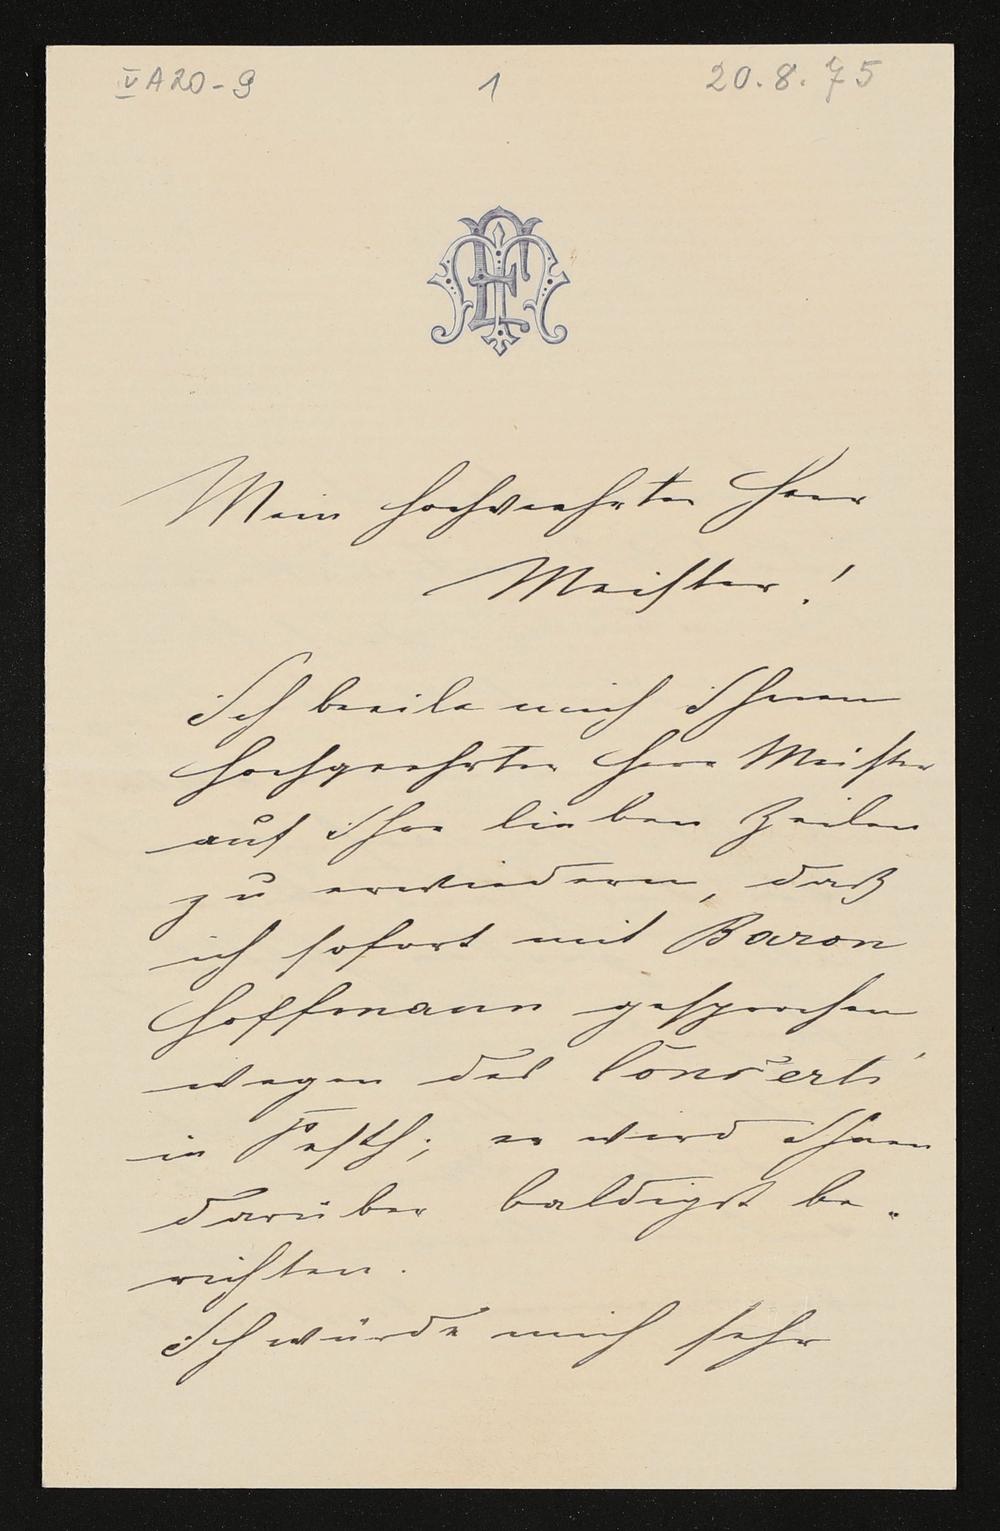 V A 20-9 1 20.8.75
Mein hochverehrter Herr
Meister!
Ich beeile mich Ihnen
hochgeehrter Herr Meister
auf Ihre lieben Zeilen
zu erwiedern, daß
ich sofort mit Baron
Hoffmann gesprochen
wegen des Concerts
in Pesth; er wird Ihnen
darüber baldigst be-
richten.
Ich würde mich sehr